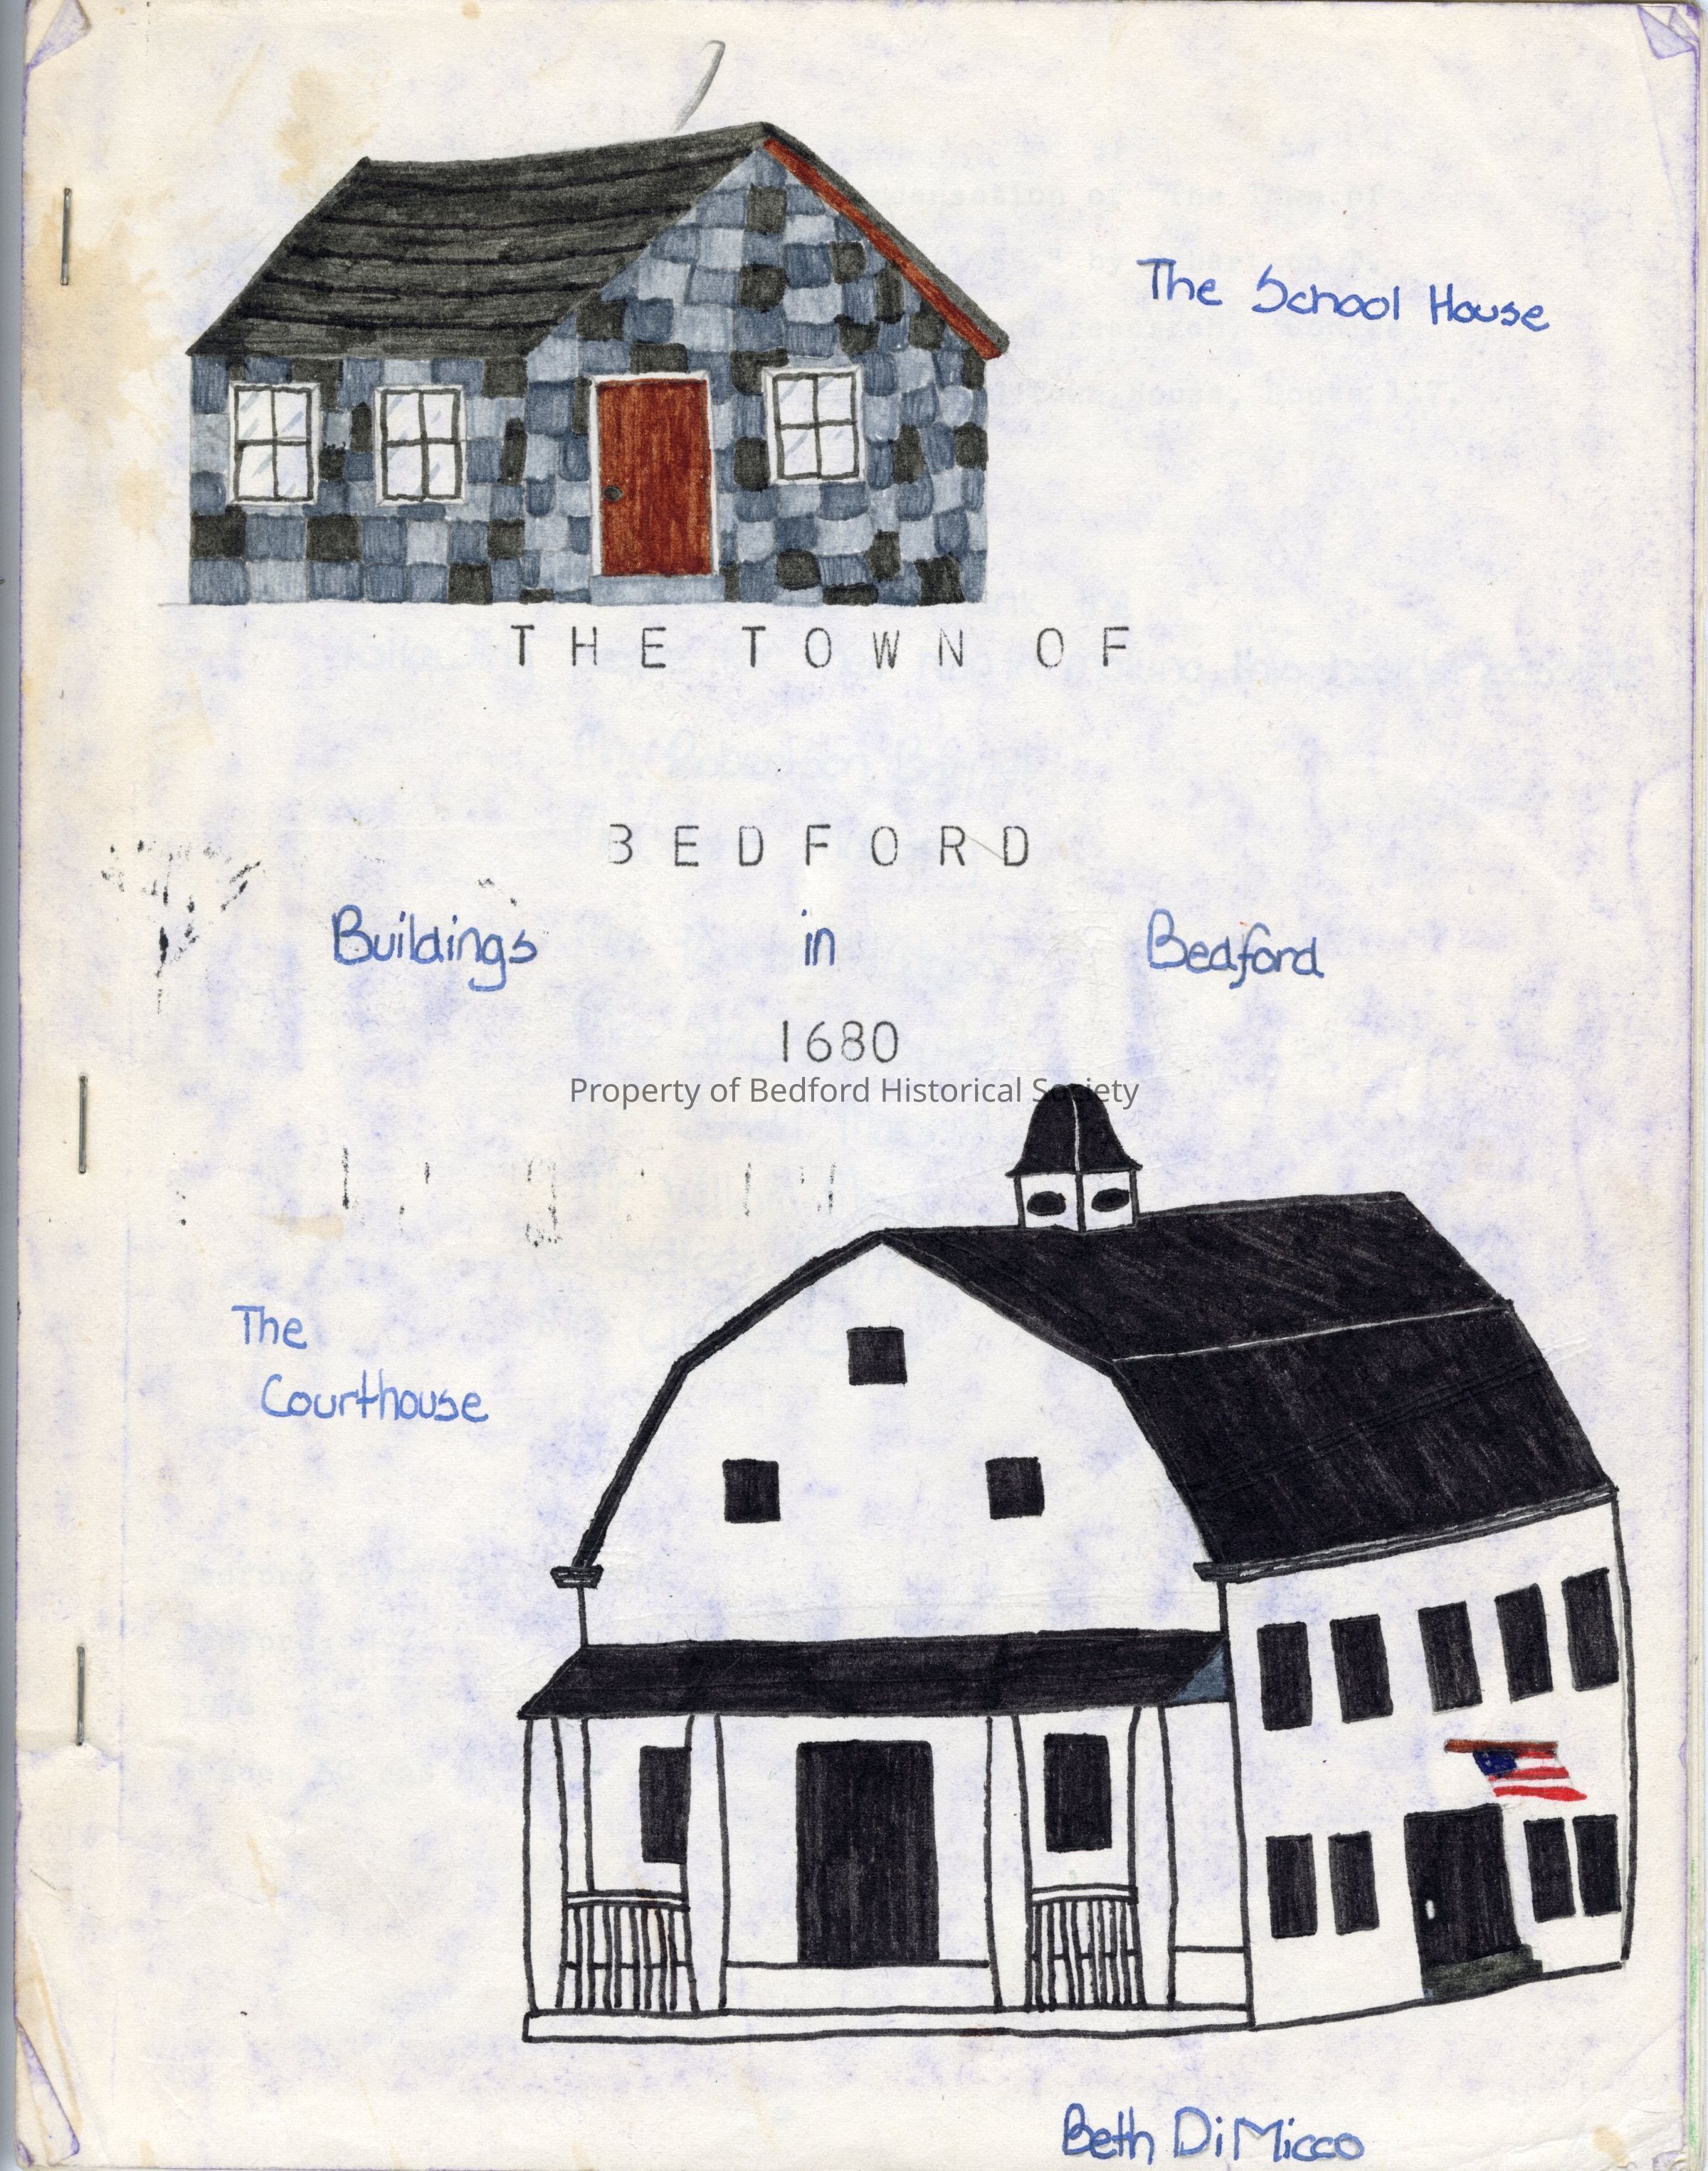 The School House
THE TOWN OF
BEDFORD
Buildings in Bedford
1680
Property of Bedford Historical Society
The
Courthouse
Beth DiMicco